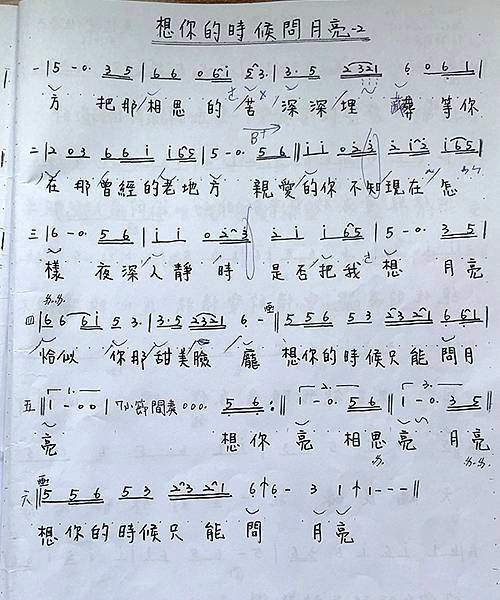 想你的時候問月亮-2
一 |5 -0. 3 5 | 6 6 0 6 i | 5 3. | 3. 5 2321 6. 0 6 1 |
方 把那相思的苦 深深埋藏 等你
二 |2 0 3 6 6 i i 6 5 | 5 -0. 5 6 || i i 0 2 3 2 i 2 i 6 5 |
在 那曾經的老地方 親愛的你 不知現在 怎
三 |6 -0. 5 6 | i i 0 2 3 2 i i 6 5 | 5 -0. 3 5 |
樣 夜深人靜 時 是否把我 想 月亮
四 |6 6 6 i 5 3. | 3. 5 2321 6. - || 5 5 6 5 3 2 3 2 1 6 6 1 |
恰似 你那甜美臉 龐 想你的時候只能 問月
五 || 1 - 0 0 | 7小節間奏 000. 5 6 :|| 1 - 0. 5 6 || 1 - 0. 3 5 |
亮 想你 亮 相思 亮 月亮
六 || 5 5 6 5 3 2 3 2 1 6 ↑ 6 - 3 1 ↑ 1 - - - ||
想你的時候只 能 問 月亮